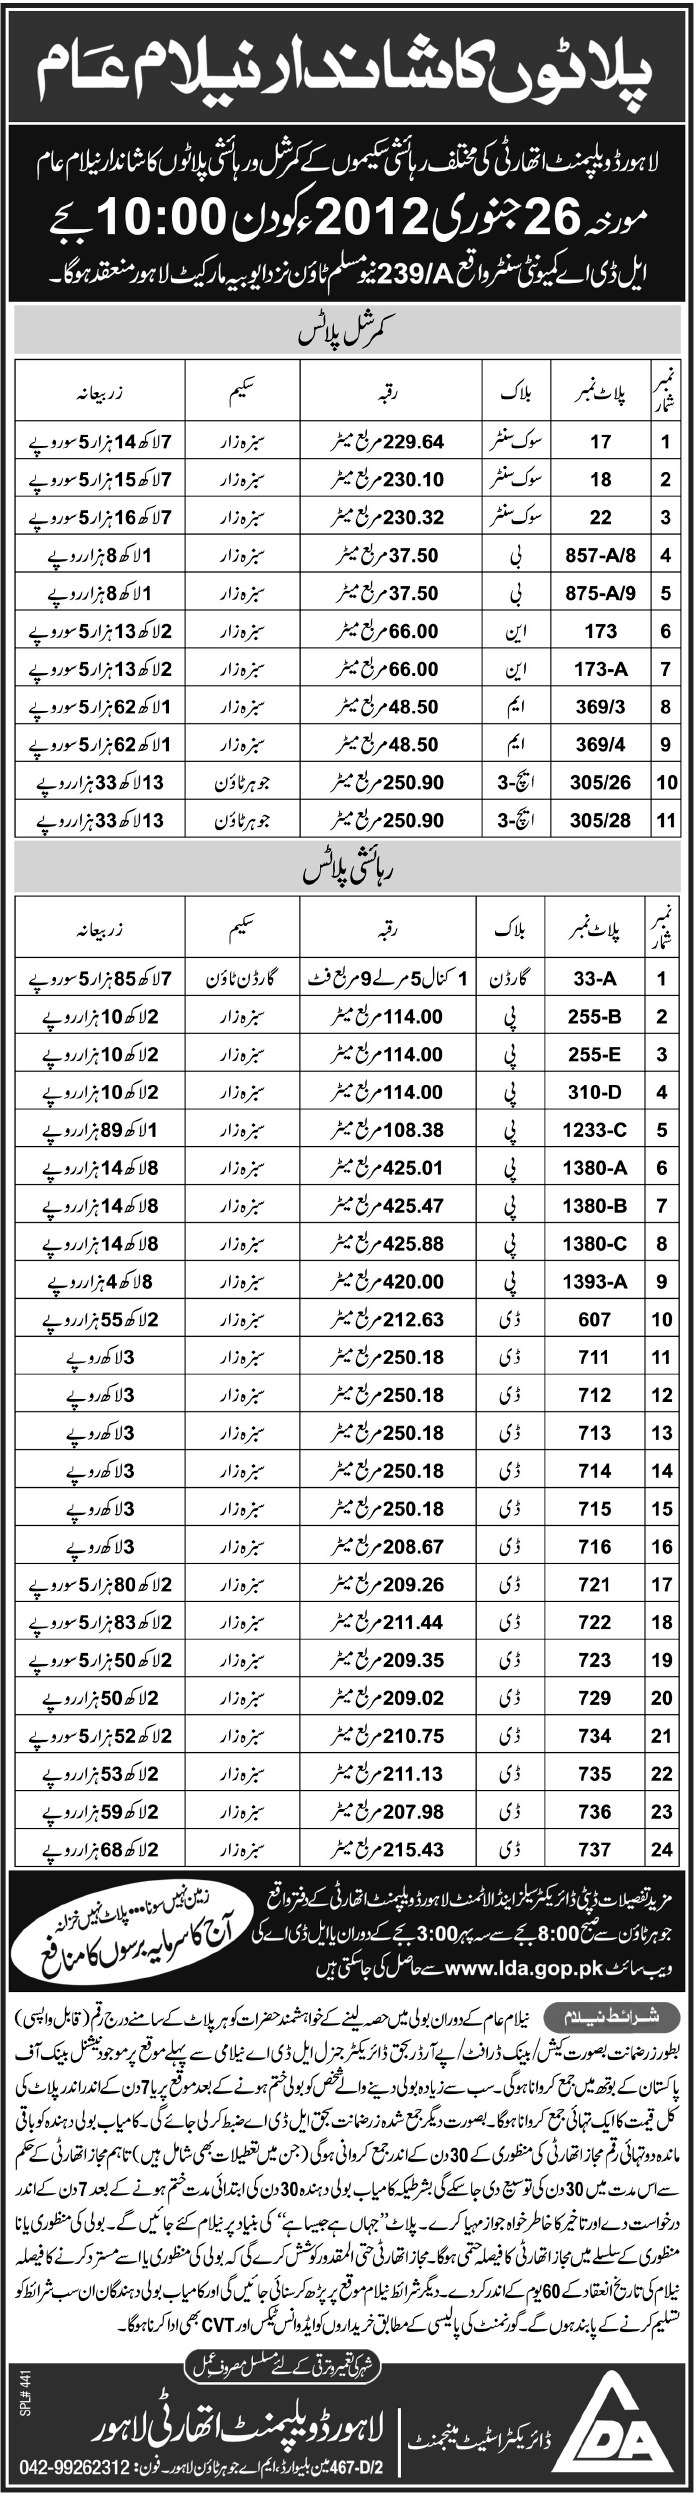 پلاٹوں کا شاندار نیلام عام
لاہور ڈویلپمنٹ اتھارٹی کی مختلف رہائشی سکیموں کے کمرشل و رہائشی پلاٹوں کا شاندار نیلام عام
مورخہ 26 جنوری 2012ء کو دن 10:00 بجے
ایل ڈی اے کمیونٹی سنٹر واقع 239/A نیو مسلم ٹاؤن نزد ایوبیہ مارکیٹ لاہور منعقد ہوگا۔
کمرشل پلاٹس
نمبر شمار پلاٹ نمبر بلاک رقبہ سکیم زر بیعانہ
1 17 سوک سنٹر 229.64 مربع میٹر سبزہ زار 7 لاکھ 14 ہزار 5 سو روپے
2 18 سوک سنٹر 230.10 مربع میٹر سبزہ زار 7 لاکھ 15 ہزار 5 سو روپے
3 22 سوک سنٹر 230.32 مربع میٹر سبزہ زار 7 لاکھ 16 ہزار 5 سو روپے
4 857-A/8 بی 37.50 مربع میٹر سبزہ زار 1 لاکھ 8 ہزار روپے
5 875-A/9 بی 37.50 مربع میٹر سبزہ زار 1 لاکھ 8 ہزار روپے
6 173 این 66.00 مربع میٹر سبزہ زار 2 لاکھ 13 ہزار 5 سو روپے
7 173-A این 66.00 مربع میٹر سبزہ زار 2 لاکھ 13 ہزار 5 سو روپے
8 369/3 ایم 48.50 مربع میٹر سبزہ زار 1 لاکھ 62 ہزار 5 سو روپے
9 369/4 ایم 48.50 مربع میٹر سبزہ زار 1 لاکھ 62 ہزار 5 سو روپے
10 305/26 ایچ-3 250.90 مربع میٹر جوہر ٹاؤن 13 لاکھ 33 ہزار روپے
11 305/28 ایچ-3 250.90 مربع میٹر جوہر ٹاؤن 13 لاکھ 33 ہزار روپے
رہائشی پلاٹس
نمبر شمار پلاٹ نمبر بلاک رقبہ سکیم زر بیعانہ
1 33-A گارڈن 1 کنال 5 مرلے 9 مربع فٹ گارڈن ٹاؤن 7 لاکھ 85 ہزار 5 سو روپے
2 255-B پی 114.00 مربع میٹر سبزہ زار 2 لاکھ 10 ہزار روپے
3 255-E پی 114.00 مربع میٹر سبزہ زار 2 لاکھ 10 ہزار روپے
4 310-D پی 114.00 مربع میٹر سبزہ زار 2 لاکھ 10 ہزار روپے
5 1233-C پی 108.38 مربع میٹر سبزہ زار 1 لاکھ 89 ہزار روپے
6 1380-A پی 425.01 مربع میٹر سبزہ زار 8 لاکھ 14 ہزار روپے
7 1380-B پی 425.47 مربع میٹر سبزہ زار 8 لاکھ 14 ہزار روپے
8 1380-C پی 425.88 مربع میٹر سبزہ زار 8 لاکھ 14 ہزار روپے
9 1393-A پی 420.00 مربع میٹر سبزہ زار 8 لاکھ 4 ہزار روپے
10 607 ڈی 212.63 مربع میٹر سبزہ زار 2 لاکھ 55 ہزار روپے
11 711 ڈی 250.18 مربع میٹر سبزہ زار 3 لاکھ روپے
12 712 ڈی 250.18 مربع میٹر سبزہ زار 3 لاکھ روپے
13 713 ڈی 250.18 مربع میٹر سبزہ زار 3 لاکھ روپے
14 714 ڈی 250.18 مربع میٹر سبزہ زار 3 لاکھ روپے
15 715 ڈی 250.18 مربع میٹر سبزہ زار 3 لاکھ روپے
16 716 ڈی 208.67 مربع میٹر سبزہ زار 3 لاکھ روپے
17 721 ڈی 209.26 مربع میٹر سبزہ زار 2 لاکھ 80 ہزار 5 سو روپے
18 722 ڈی 211.44 مربع میٹر سبزہ زار 2 لاکھ 83 ہزار 5 سو روپے
19 723 ڈی 209.35 مربع میٹر سبزہ زار 2 لاکھ 50 ہزار 5 سو روپے
20 729 ڈی 209.02 مربع میٹر سبزہ زار 2 لاکھ 50 ہزار روپے
21 734 ڈی 210.75 مربع میٹر سبزہ زار 2 لاکھ 52 ہزار 5 سو روپے
22 735 ڈی 211.13 مربع میٹر سبزہ زار 2 لاکھ 53 ہزار روپے
23 736 ڈی 207.98 مربع میٹر سبزہ زار 2 لاکھ 59 ہزار روپے
24 737 ڈی 215.43 مربع میٹر سبزہ زار 2 لاکھ 68 ہزار روپے
مزید تفصیلات ڈپٹی ڈائریکٹر سیلز اینڈ الاٹمنٹ لاہور ڈویلپمنٹ اتھارٹی کے دفتر واقع
جوہر ٹاؤن سے صبح 8:00 بجے سے سہ پہر 3:00 بجے کے دوران یا ایل ڈی اے کی
ویب سائٹ www.lda.gop.pk سے حاصل کی جاسکتی ہیں
زمین نہیں سونا... پلاٹ نہیں خزانہ
آج کا سرمایہ برسوں کا منافع
شرائط نیلام نیلام عام کے دوران بولی میں حصہ لینے کے خواہشمند حضرات کو ہر پلاٹ کے سامنے درج رقم (قابل واپسی)
بطور زر ضمانت بصورت کیش/ بینک ڈرافٹ/ پے آرڈر بحق ڈائریکٹر جنرل ایل ڈی اے نیلامی سے پہلے موقع پر موجود نیشنل بینک آف
پاکستان کے بوتھ میں جمع کروانا ہوگی۔ سب سے زیادہ بولی دینے والے شخص کو بولی ختم ہونے کے بعد موقع پر یا 7 دن کے اندر اندر پلاٹ کی
کل قیمت کا ایک تہائی جمع کروانا ہوگا۔ بصورت دیگر جمع شدہ زر ضمانت بحق ایل ڈی اے ضبط کر لی جائے گی۔ کامیاب بولی دہندہ کو باقی
ماندہ دو تہائی رقم مجاز اتھارٹی کی منظوری کے 30 دن کے اندر جمع کروانی ہوگی (جن میں تعطیلات بھی شامل ہیں) تاہم مجاز اتھارٹی کے حکم
سے اس مدت میں 30 دن کی توسیع دی جاسکے گی بشرطیکہ کامیاب بولی دہندہ 30 دن کی ابتدائی مدت ختم ہونے کے بعد 7 دن کے اندر
درخواست دے اور تاخیر کا خاطر خواہ جواز مہیا کرے۔ پلاٹ "جہاں ہے جیسا ہے" کی بنیاد پر نیلام کئے جائیں گے۔ بولی کی منظوری یا نا
منظوری کے سلسلے میں مجاز اتھارٹی کا فیصلہ حتمی ہوگا۔ مجاز اتھارٹی حتی المقدور کوشش کرے گی کہ بولی کی منظوری یا اسے مسترد کرنے کا فیصلہ
نیلام کی تاریخ انعقاد کے 60 یوم کے اندر کر دے۔ دیگر شرائط نیلام موقع پر پڑھ کر سنائی جائیں گی اور کامیاب بولی دہندگان ان سب شرائط کو
تسلیم کرنے کے پابند ہوں گے۔ گورنمنٹ کی پالیسی کے مطابق خریداروں کو ایڈوانس ٹیکس اور CVT بھی ادا کرنا ہوگا۔
شہر کی تعمیر و ترقی کے لئے مسلسل مصروف عمل
LDA
ڈائریکٹر اسٹیٹ مینجمنٹ
لاہور ڈویلپمنٹ اتھارٹی لاہور
467-D/2 مین بلیوارڈ، ایم اے جوہر ٹاؤن لاہور۔ فون: 042-99262312
SPL# 441